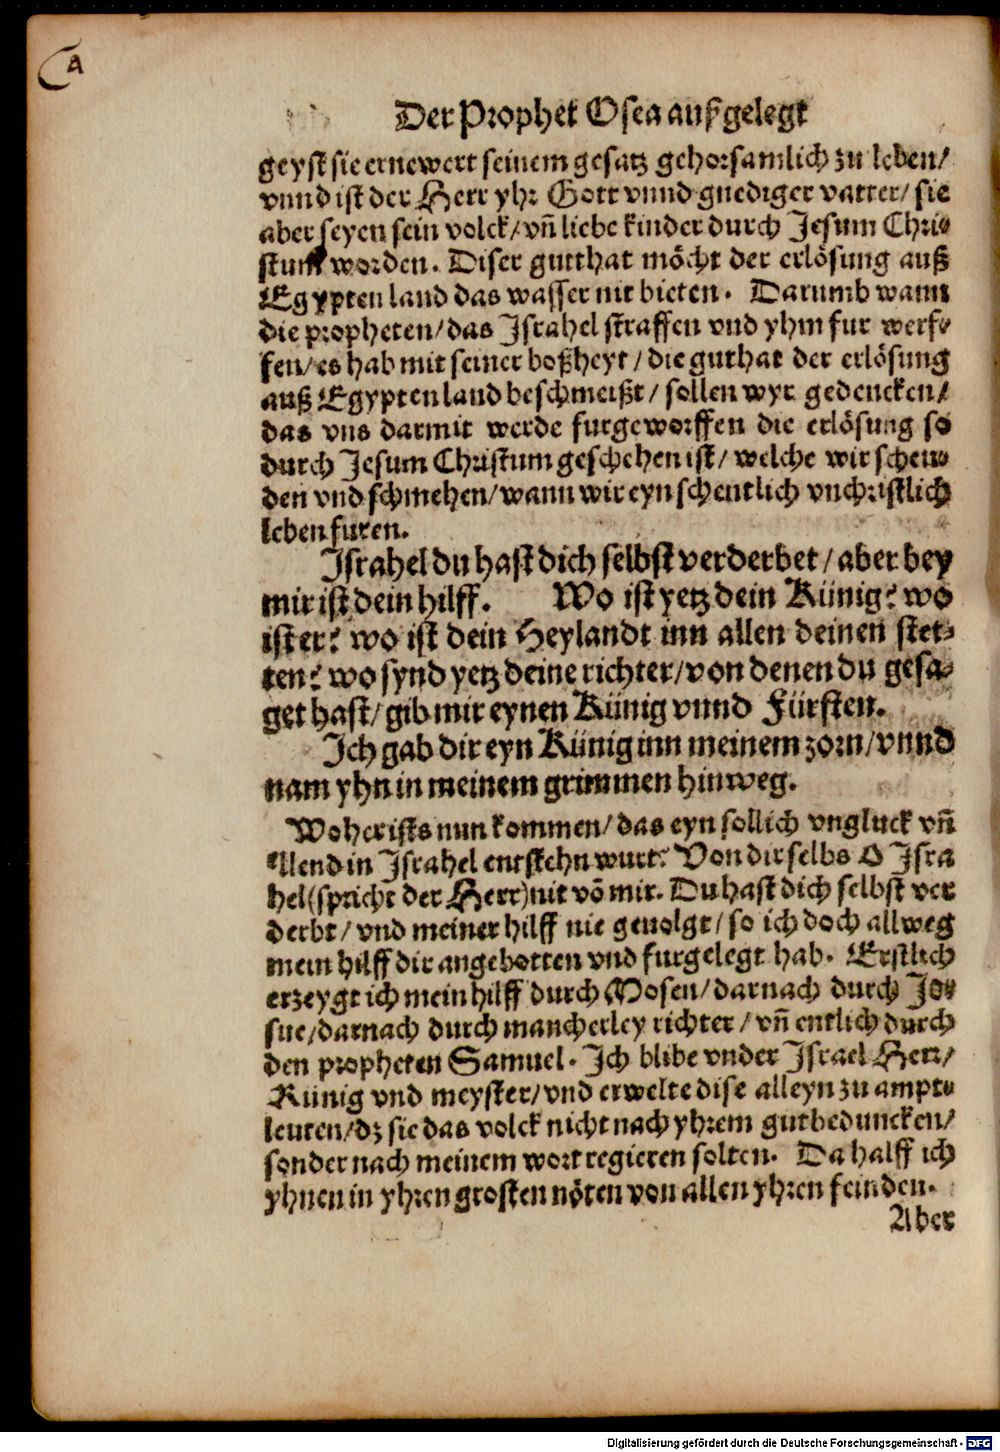 A
Der Prophet Osea außgelegt
geyst sie ernewert seinem gesatz gehorsamlich zu leben/
vnnd ist der Herr yhr Gott vnnd gnediger vatter/ sie
aber seyen sein volck/ vñ liebe kinder durch Jesum Chri⸗
stum worden. Diser gutthat möcht der erlösung auß
Egypten land das wasser nit bieten. Darumb wann
die propheten/ das Israhel straffen vnd yhm fur werf⸗
fen/ es hab mit seiner boßheyt/ die guthat der erlösung
auß Egypten land beschmeißt/ sollen wyr gedencken/
das vns darmit werde furgeworffen die erlösung so
durch Jesum Christum geschehen ist/ welche wir schen⸗
den vnd schmehen/ wann wir eyn schentlich vnchristlich
leben furen.
Israhel du hast dich selbst verderbet/ aber bey
mir ist dein hilff. Wo ist yetz dein Künig? wo
ist er? wo ist dein Heylandt inn allen deinen stet⸗
ten? wo synd yetz deine richter/ von denen du gesa⸗
get hast/ gib mir eynen Künig vnnd Fürsten.
Ich gab dir eyn Künig inn meinem zorn/ vnnd
nam yhn in meinem grimmen hinweg.
Woher ists nun kommen/ das eyn sollich vngluck vñ
ellend in Israhel entstehn wurt? Von dir selbs O Isra
hel (spricht der Herr) nit võ mir. Du hast dich selbst ver
derbt/ vnd meiner hilff nie geuolgt/ so ich doch allweg
mein hilff dir angebotten vnd furgelegt hab. Erstlich
erzeygt ich mein hilff durch Mosen/ darnach durch Jo⸗
sue/ darnach durch mancherley richter/ vñ entlich durch
den propheten Samuel. Ich blibe vnder Israel Herr/
Künig vnd meyster/ vnd erwelte dise alleyn zu ampt⸗
leuten/ dz sie das volck nicht nach yhrem gutbeduncken/
sonder nach meinem wort regieren solten. Da halff ich
yhnen in yhren grosten nöten von allen yhren feinden.
Aber
Digitalisierung gefördert durch die Deutsche Forschungsgemeinschaft - DFG